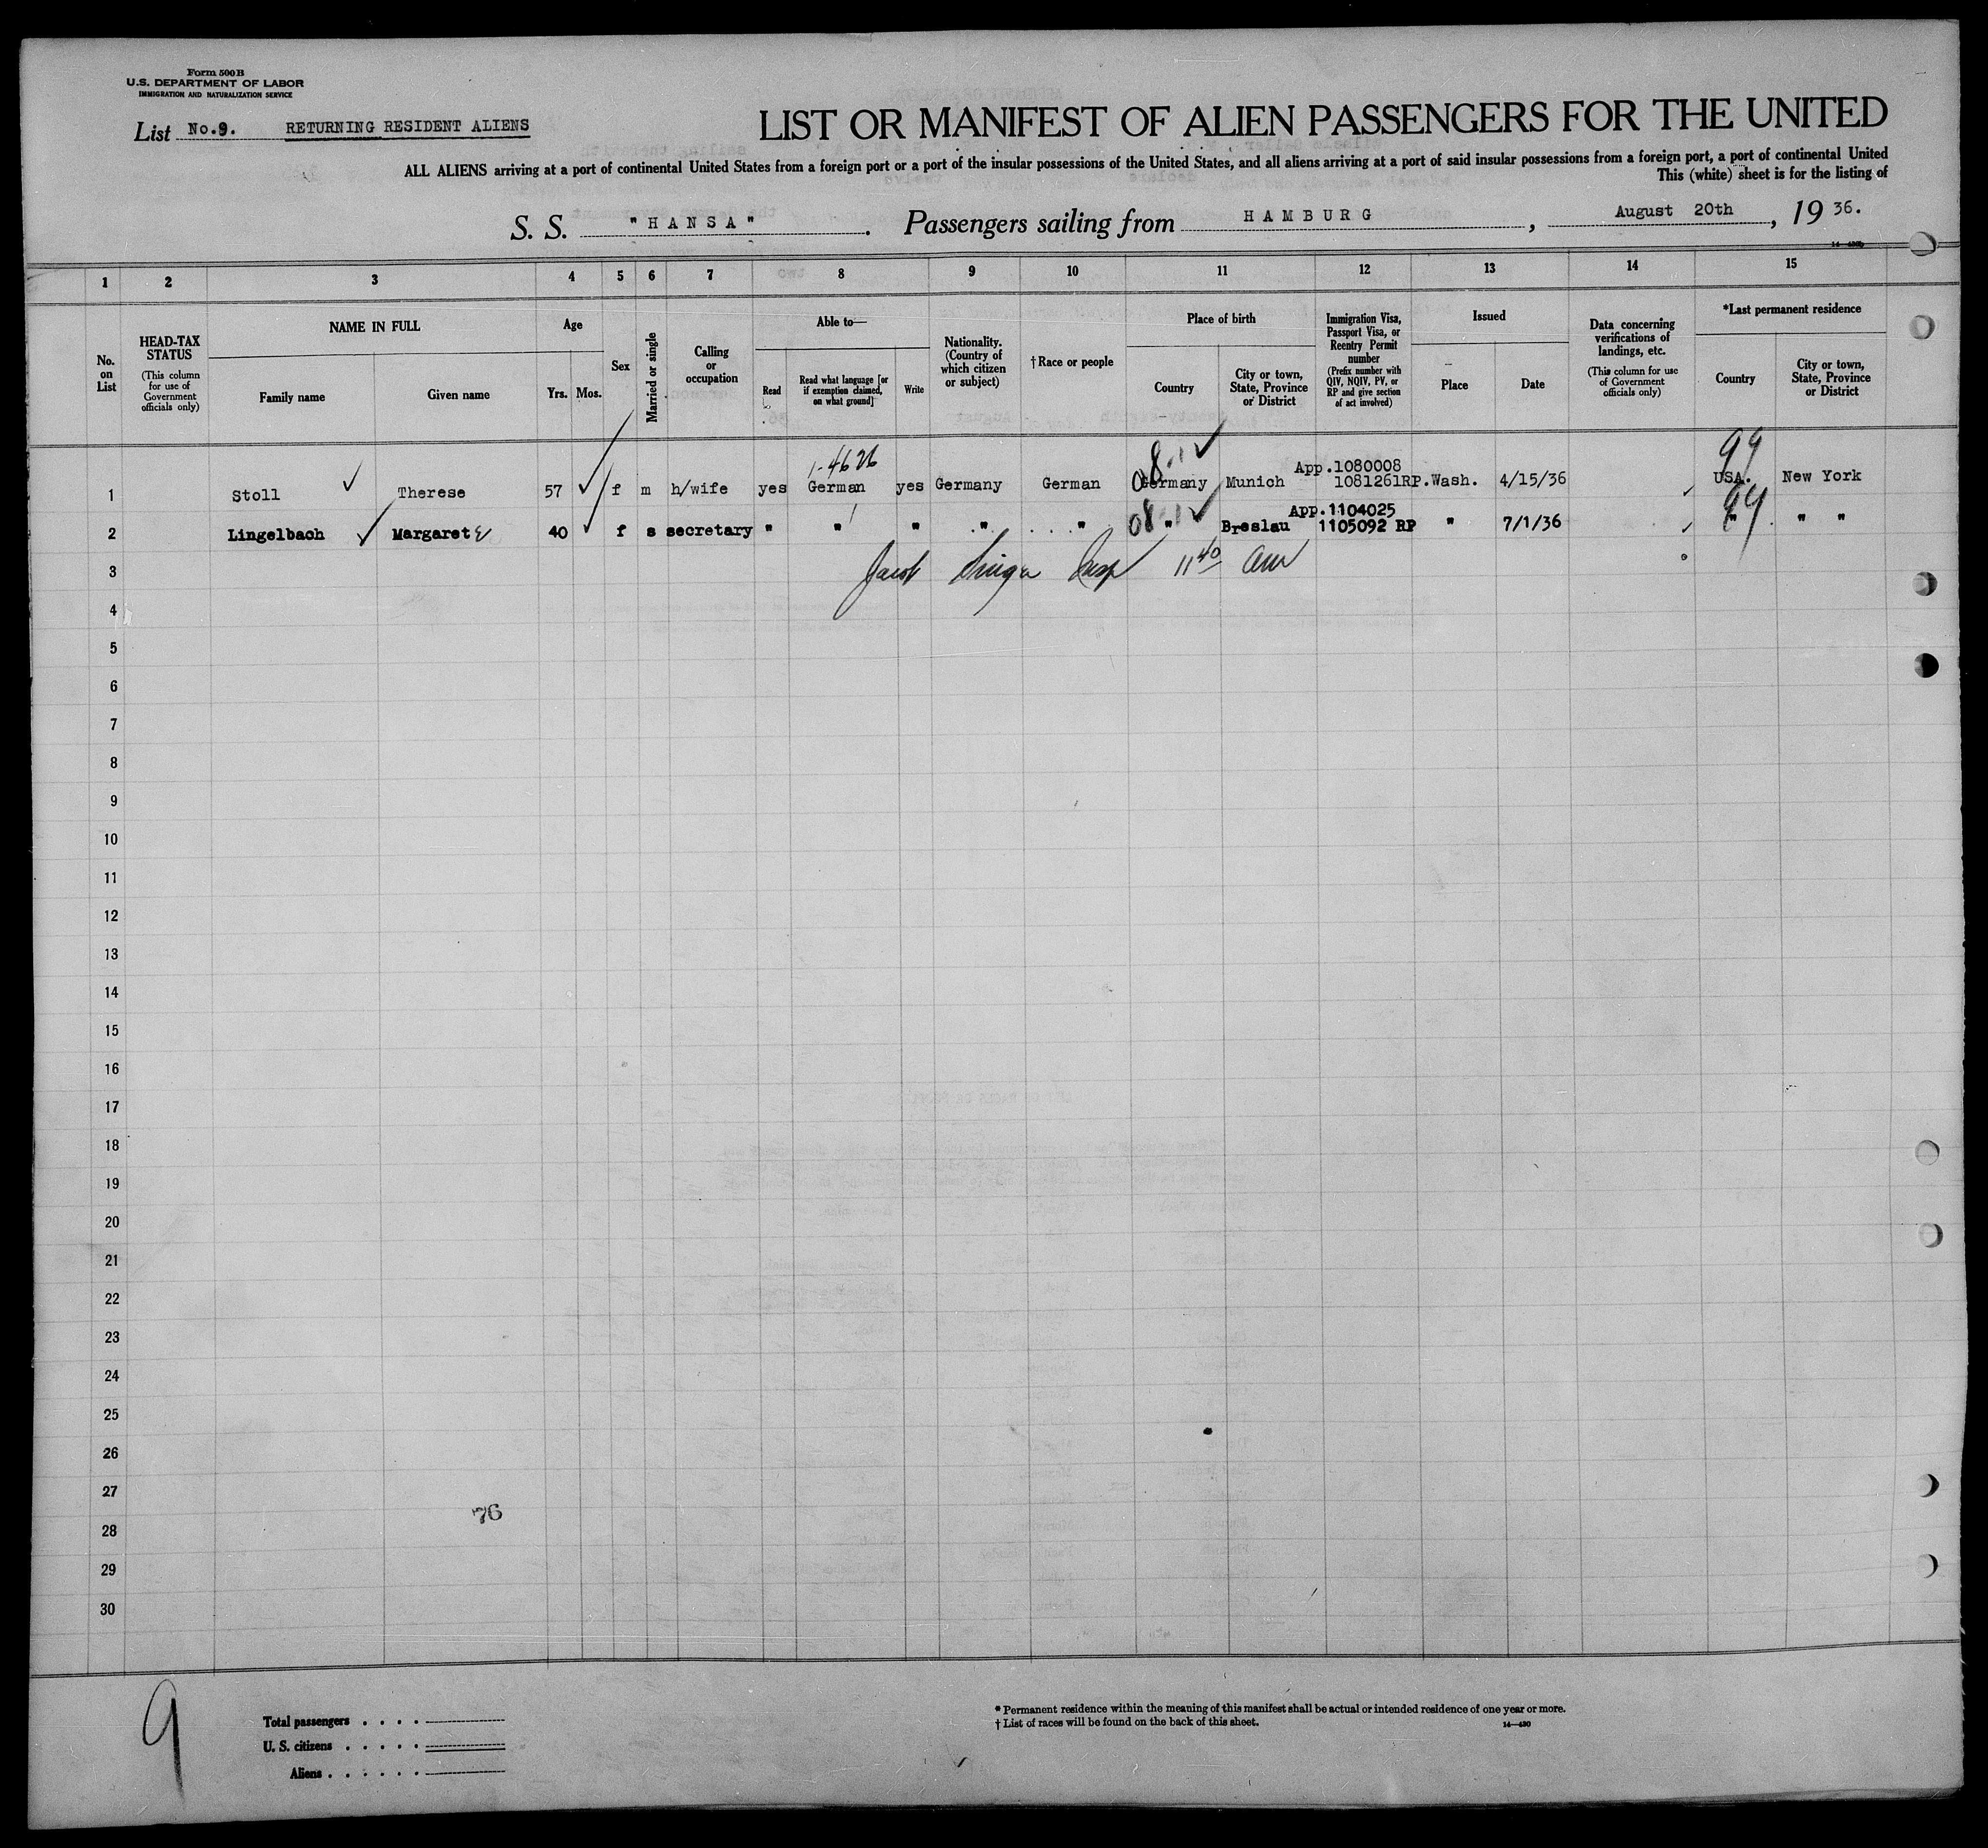 Form 500B
U.S. DEPARTMENT OF LABOR
IMMIGRATION AND NATURALIZATION SERVICE
List No.9. RETURNING RESIDENT ALIENS
LIST OR MANIFEST OF ALIEN PASSENGERS FOR THE UNITED
ALL ALIENS arriving at a port of continental United States from a foreign port or a port of the insular possessions of the United States, and all aliens arriving at a port of said insular possessions from a foreign port, a port of continental United
This (white) sheet is for the listing of
S. S. "HANSA". Passengers sailing from HAMBURG, August 20th, 1936.
1 2 3 4 5 6 7 8 9 10 11 12 13 14 15
No. on List
HEAD-TAX STATUS
(This column for use of Government officials only)
NAME IN FULL
Family name
Given name
Age
Yrs. Mos.
Sex
Married or single
Calling or occupation
Able to—
Read
Read what language [or if exemption claimed, on what ground]
Write
Nationality. (Country of which citizen or subject)
† Race or people
Place of birth
Country
City or town, State, Province or District
Immigration Visa, Passport Visa, or Reentry Permit number
(Prefix number with QIV, NQIV, PV, or RP and give section of act involved)
Issued
Place
Date
Data concerning verifications of landings, etc.
(This column for use of Government officials only)
*Last permanent residence
Country
City or town, State, Province or District
1-4626 08-1 ✓ 99
App.1080008
1 Stoll ✓ Therese 57 ✓ f m h/wife yes German yes Germany German Germany Munich 1081261RP. Wash. 4/15/36 USA. New York
App.1104025
2 Lingelbach ✓ Margaret 40 ✓ f s secretary " " " " " 08-1 ✓ " Breslau 1105092 RP " 7/1/36 99 " " "
3 Jacob Insp 11 40 am
4
5
6
7
8
9
10
11
12
13
14
15
16
17
18
19
20
21
22
23
24
25
26
27
76
28
29
30
9
Total passengers . . . .
U. S. citizens . . . . .
Aliens . . . . . .
* Permanent residence within the meaning of this manifest shall be actual or intended residence of one year or more.
† List of races will be found on the back of this sheet.
14—430